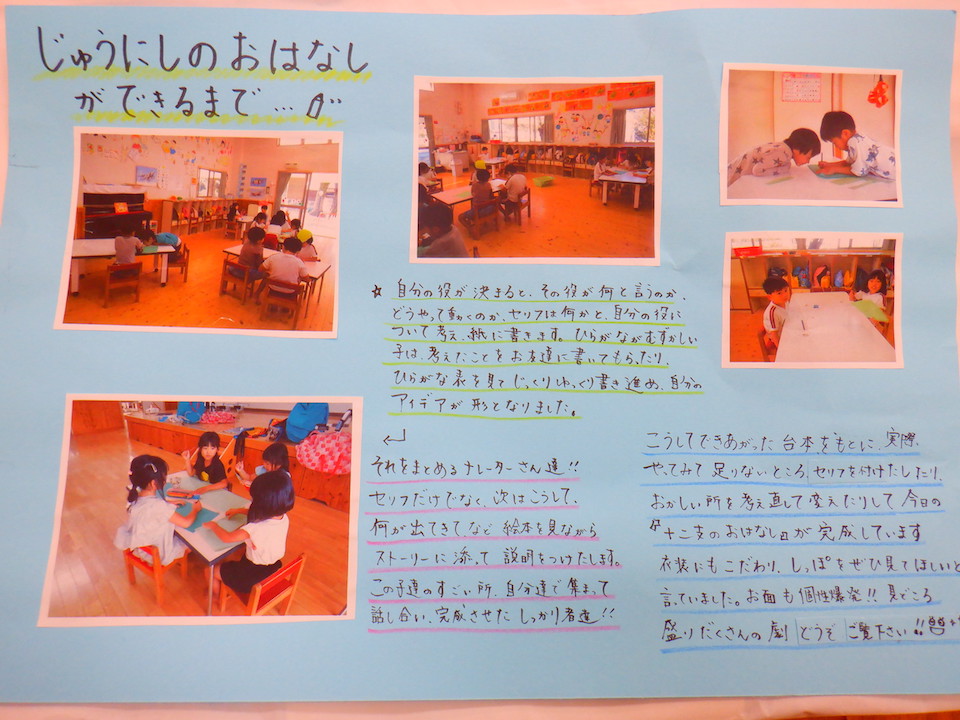 じゅうにしのおはなし
ができるまで…
☆ 自分の役が決まると、その役が何と言うのか、
どうやって動くのか、セリフは何かと、自分の役に
ついて考え、紙に書きます。ひらがながむずかしい
子は、考えたことをお友達に書いてもらったり、
ひらがな表を見てじっくりゆっくり書き進め、自分の
アイデアが形となりました。
それをまとめるナレーターさん達!!
セリフだけでなく、次はこうして、
何が出てきてなど絵本を見ながら
ストーリーに添って説明をつけたします。
この子達のすごい所、自分達で集まって
話し合い、完成させたしっかり者達!!
こうしてできあがった台本をもとに、実際、
やってみて足りないところ、セリフを付けたしたり、
おかしい所を考え直して変えたりして今日の
『十二支のおはなし』が完成しています
衣装にもこだわり、しっぽをぜひ見てほしいと
言っていました。お面も個性爆発!! 見どころ
盛りだくさんの劇どうぞご覧下さい!!